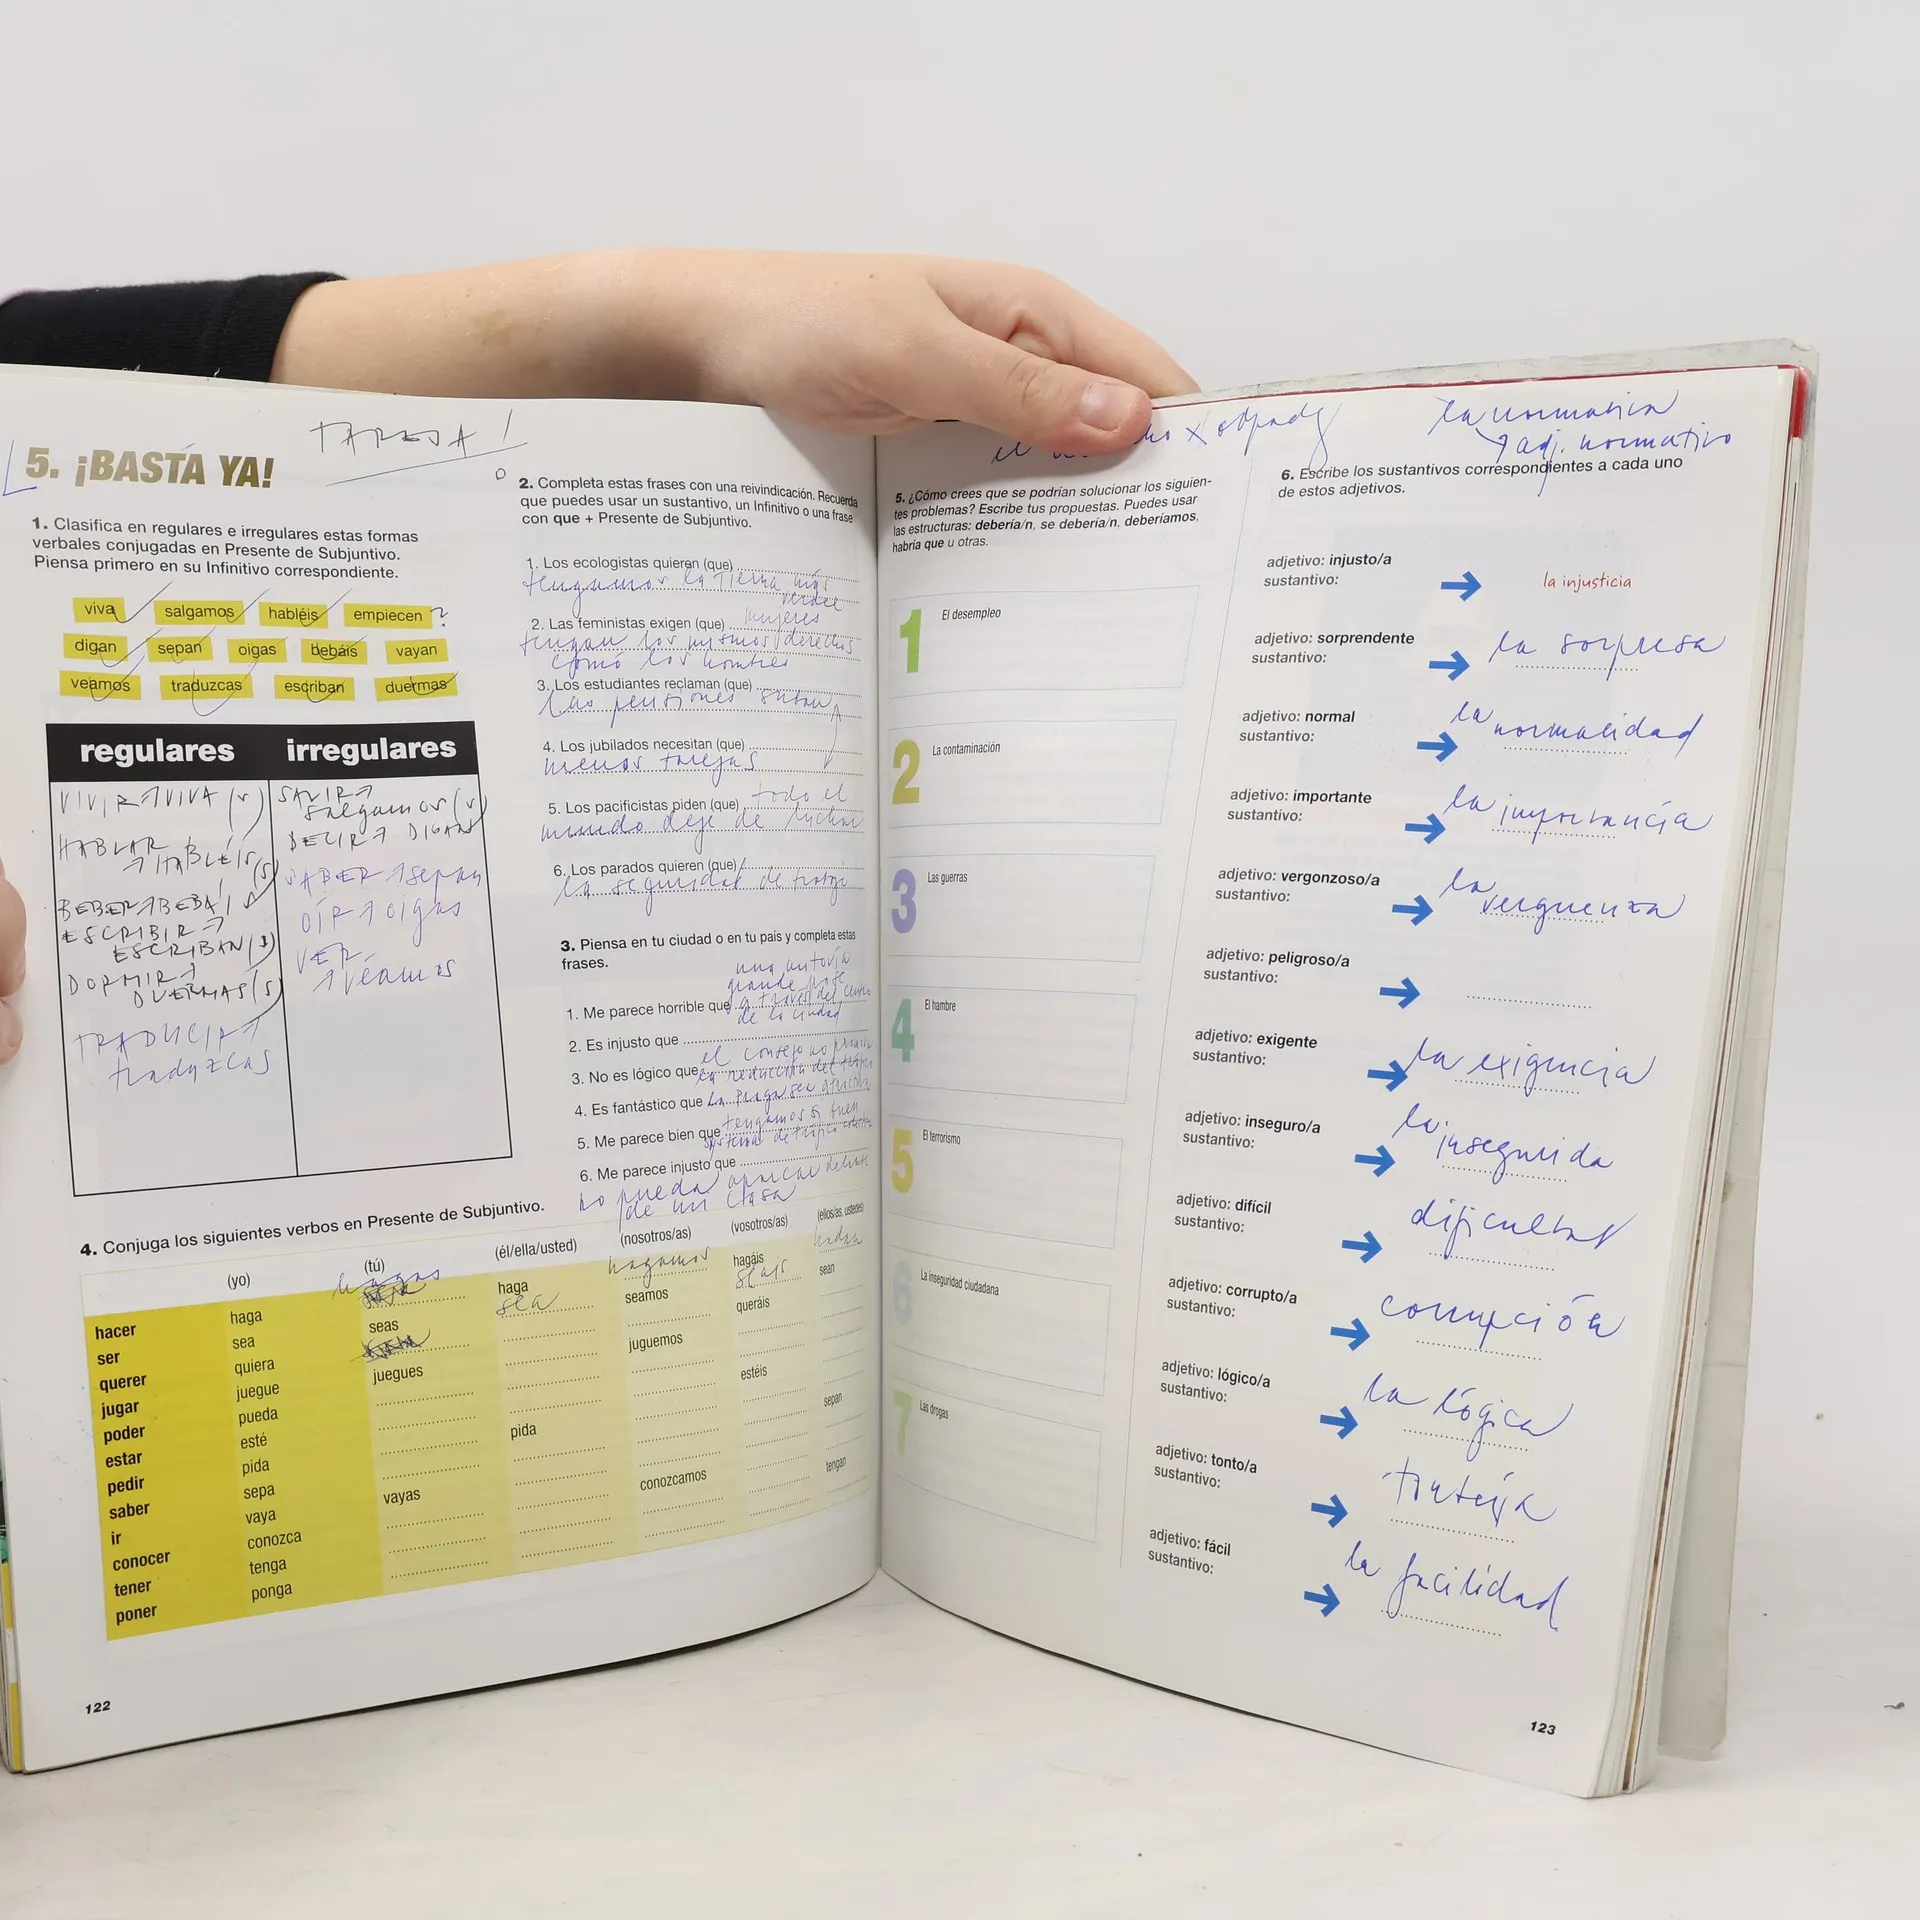 TAREJA!
5. ¡BASTA YA!
1. Clasifica en regulares e irregulares estas formas
verbales conjugadas en Presente de Subjuntivo.
Piensa primero en su Infinitivo correspondiente.
viva salgamos habléis empiecen ?
digan sepan oigas bebáis vayan
veamos traduzcas escriban duermas
regulares irregulares
VIVIR → VIVA (s)
HABLAR
→ HABLÉIS (s)
BEBER → BEBÁIS
ESCRIBIR →
ESCRIBAN (s)
DORMIR →
DUERMAS (s)
TRADUCIR →
traduzcas
SALIR →
salgamos (s)
DECIR → DIGAN
SABER → sepan
OÍR → oigas
VER
→ véamos
2. Completa estas frases con una reivindicación. Recuerda
que puedes usar un sustantivo, un Infinitivo o una frase
con que + Presente de Subjuntivo.
1. Los ecologistas quieren (que)
tengamos la Tierra más
verde
2. Las feministas exigen (que) mujeres
tengan los mismos derechos
como los hombres
3. Los estudiantes reclaman (que)
Las pensiones suban
4. Los jubilados necesitan (que)
menos tarejas
5. Los pacifistas piden (que) todo el
mundo deje de luchar
6. Los parados quieren (que)
la seguridad de trabajo
3. Piensa en tu ciudad o en tu país y completa estas
frases.
una autovía
grande pase
1. Me parece horrible que a través del centro
de la ciudad
2. Es injusto que
el consejo no
3. No es lógico que la reducción del tráfico
4. Es fantástico que la Praga sea
tengamos buen
5. Me parece bien que sistema de tráfico
6. Me parece injusto que
no pueda aparcar delante
de mi casa
4. Conjuga los siguientes verbos en Presente de Subjuntivo.
(yo) (tú) (él/ella/usted) (nosotros/as) (vosotros/as) (ellos/as, ustedes)
hacer haga hagas haga hagamos hagáis
ser sea seas sea seamos seáis sean
querer quiera queráis
jugar juegue juegues juguemos
poder pueda
estar esté estéis
pedir pida pida
saber sepa sepan
ir vaya vayas
conocer conozca conozcamos
tener tenga tengan
poner ponga
122
5. ¿Cómo crees que se podrían solucionar los siguien-
tes problemas? Escribe tus propuestas. Puedes usar
las estructuras: debería/n, se debería/n, deberíamos,
habría que u otras.
1 El desempleo
2 La contaminación
3 Las guerras
4 El hambre
5 El terrorismo
6 La inseguridad ciudadana
7 Las drogas
la normativa
→ adj. normativo
6. Escribe los sustantivos correspondientes a cada uno
de estos adjetivos.
adjetivo: injusto/a
sustantivo: la injusticia
adjetivo: sorprendente
sustantivo: la sorpresa
adjetivo: normal
sustantivo: la normalidad
adjetivo: importante
sustantivo: la importancia
adjetivo: vergonzoso/a
sustantivo: la verguenza
adjetivo: peligroso/a
sustantivo:
adjetivo: exigente
sustantivo: la exigencia
adjetivo: inseguro/a
sustantivo: la insegurida
adjetivo: difícil
sustantivo: dificultad
adjetivo: corrupto/a
sustantivo: corrupción
adjetivo: lógico/a
sustantivo: la lógica
adjetivo: tonto/a
sustantivo: tontería
adjetivo: fácil
sustantivo: la facilidad
123